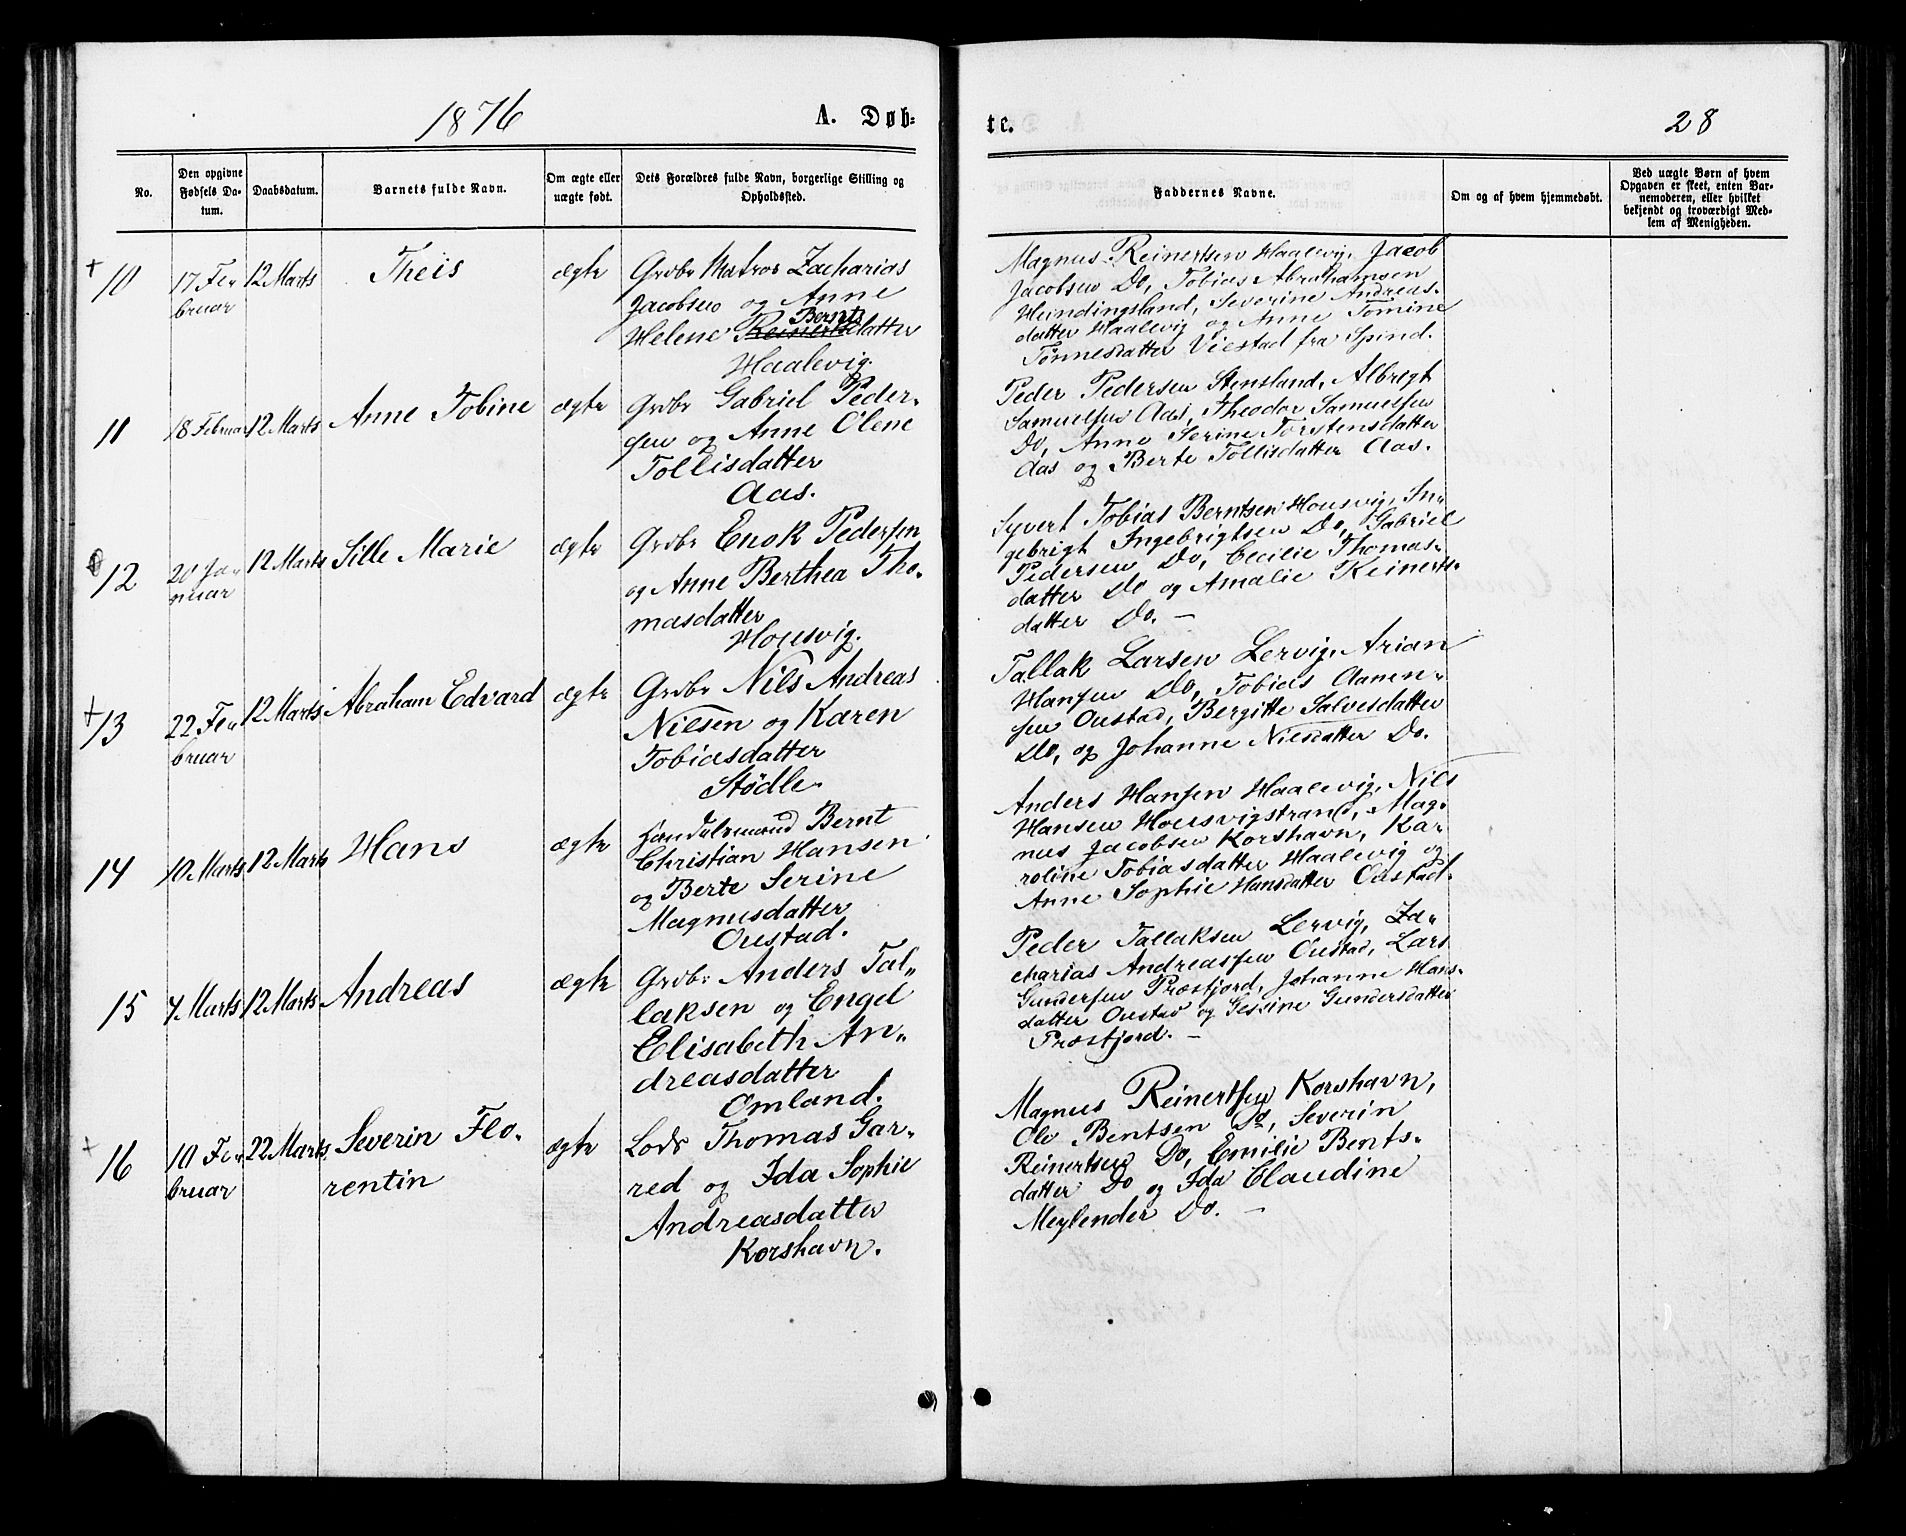 1876
A. Døb-
te.
28
No.
Den opgivne
Fødsels Da-
tum.
Daabsdatum.
Barnets fulde Navn.
Om ægte eller
uægte født.
Dets Forældres fulde Navn, borgerlige Stilling og
Opholdssted.
Faddernes Navne.
Om og af hvem hjemmedøbt.
Ved uægte Børn af hvem
Opgaven er skeet, enten Bar-
nemoderen, eller hvilket
bekjendt og troværdigt Med-
lem af Menigheden.
+ 10
17 Fe-
bruar
12 Marts
Theis
ægte
Grdbr Matros Zacharias
Jacobsen og Anne
Bernts
Helene Reinertsdatter
Haalevig.
Magnus Reinertsen Haalevig, Jacob
Jacobsen Do, Tobias Abrahamsen
Heindingsland, Severine Andreas-
datter Haalevig og Anne Tomine
Tønnesdatter Viestad fra Spind.
11
18 Februar
12 Marts
Anne Tobine
ægte
Grdbr Gabriel Peder-
sen og Anne Olene
Tollisdatter
Aas.
Peder Pedersen Stensland, Albregt
Samuelsen Aas, Theodor Samuelsen
Do, Anne Serine Torstensdatter
Aas og Berte Tollisdatter Aas.
12
20 Ja-
nuar
12 Marts
Sille Marie
ægte
Grdbr Enok Pedersen
og Anne Berthea Tho-
masdatter
Housvig.
Syvert Tobias Berntsen Housvig, In-
gebrigt Ingebrigtsen Do, Gabriel
Pedersen Do, Cecilie Thomas-
datter Do og Amalie Reinerts-
datter Do. —
+ 13
22 Fe-
bruar
12 Marts
Abraham Edvard
ægte
Grdbr Nils Andreas
Nilsen og Karen
Tobiasdatter
Stødle.
Tallak Larsen Lervig, Arian
Hansen Do, Tobias Aanen-
sen Oustad, Bergitte Salvesdatter
Do, og Johanne Nilsdatter Do.
14
10 Marts
12 Marts
Hans
ægte
Handelsmand Bernt
Christian Hansen
og Berte Serine
Magnusdatter
Oustad.
Anders Hansen Haalevig, Nils
Hansen Housvigstrand, Mag-
nus Jacobsen Korshavn, Ka-
roline Tobiasdatter Haalevig og
Anne Sophie Hansdatter Oustad.
15
7 Marts
12 Marts
Andreas
ægte
Grdbr Anders Tal-
laksen og Engel
Elisabeth An-
dreasdatter
Omland.
Peder Tallaksen Lervig, Za-
charias Andreassen Oustad, Lars
Gundersen Præstfjord, Johanne Hans-
datter Oustad og Gesine Gundersdatter
Præstfjord. —
+ 16
10 Fe-
bruar
22 Marts
Severin Flo-
rentin
ægte
Lods Thomas Gar-
red og Ida Sophie
Andreasdatter
Korshavn.
Magnus Reinertsen Korshavn,
Ole Bentsen Do, Severin
Reinertsen Do, Emilie Bents-
datter Do og Ida Claudine
Meylender Do. —